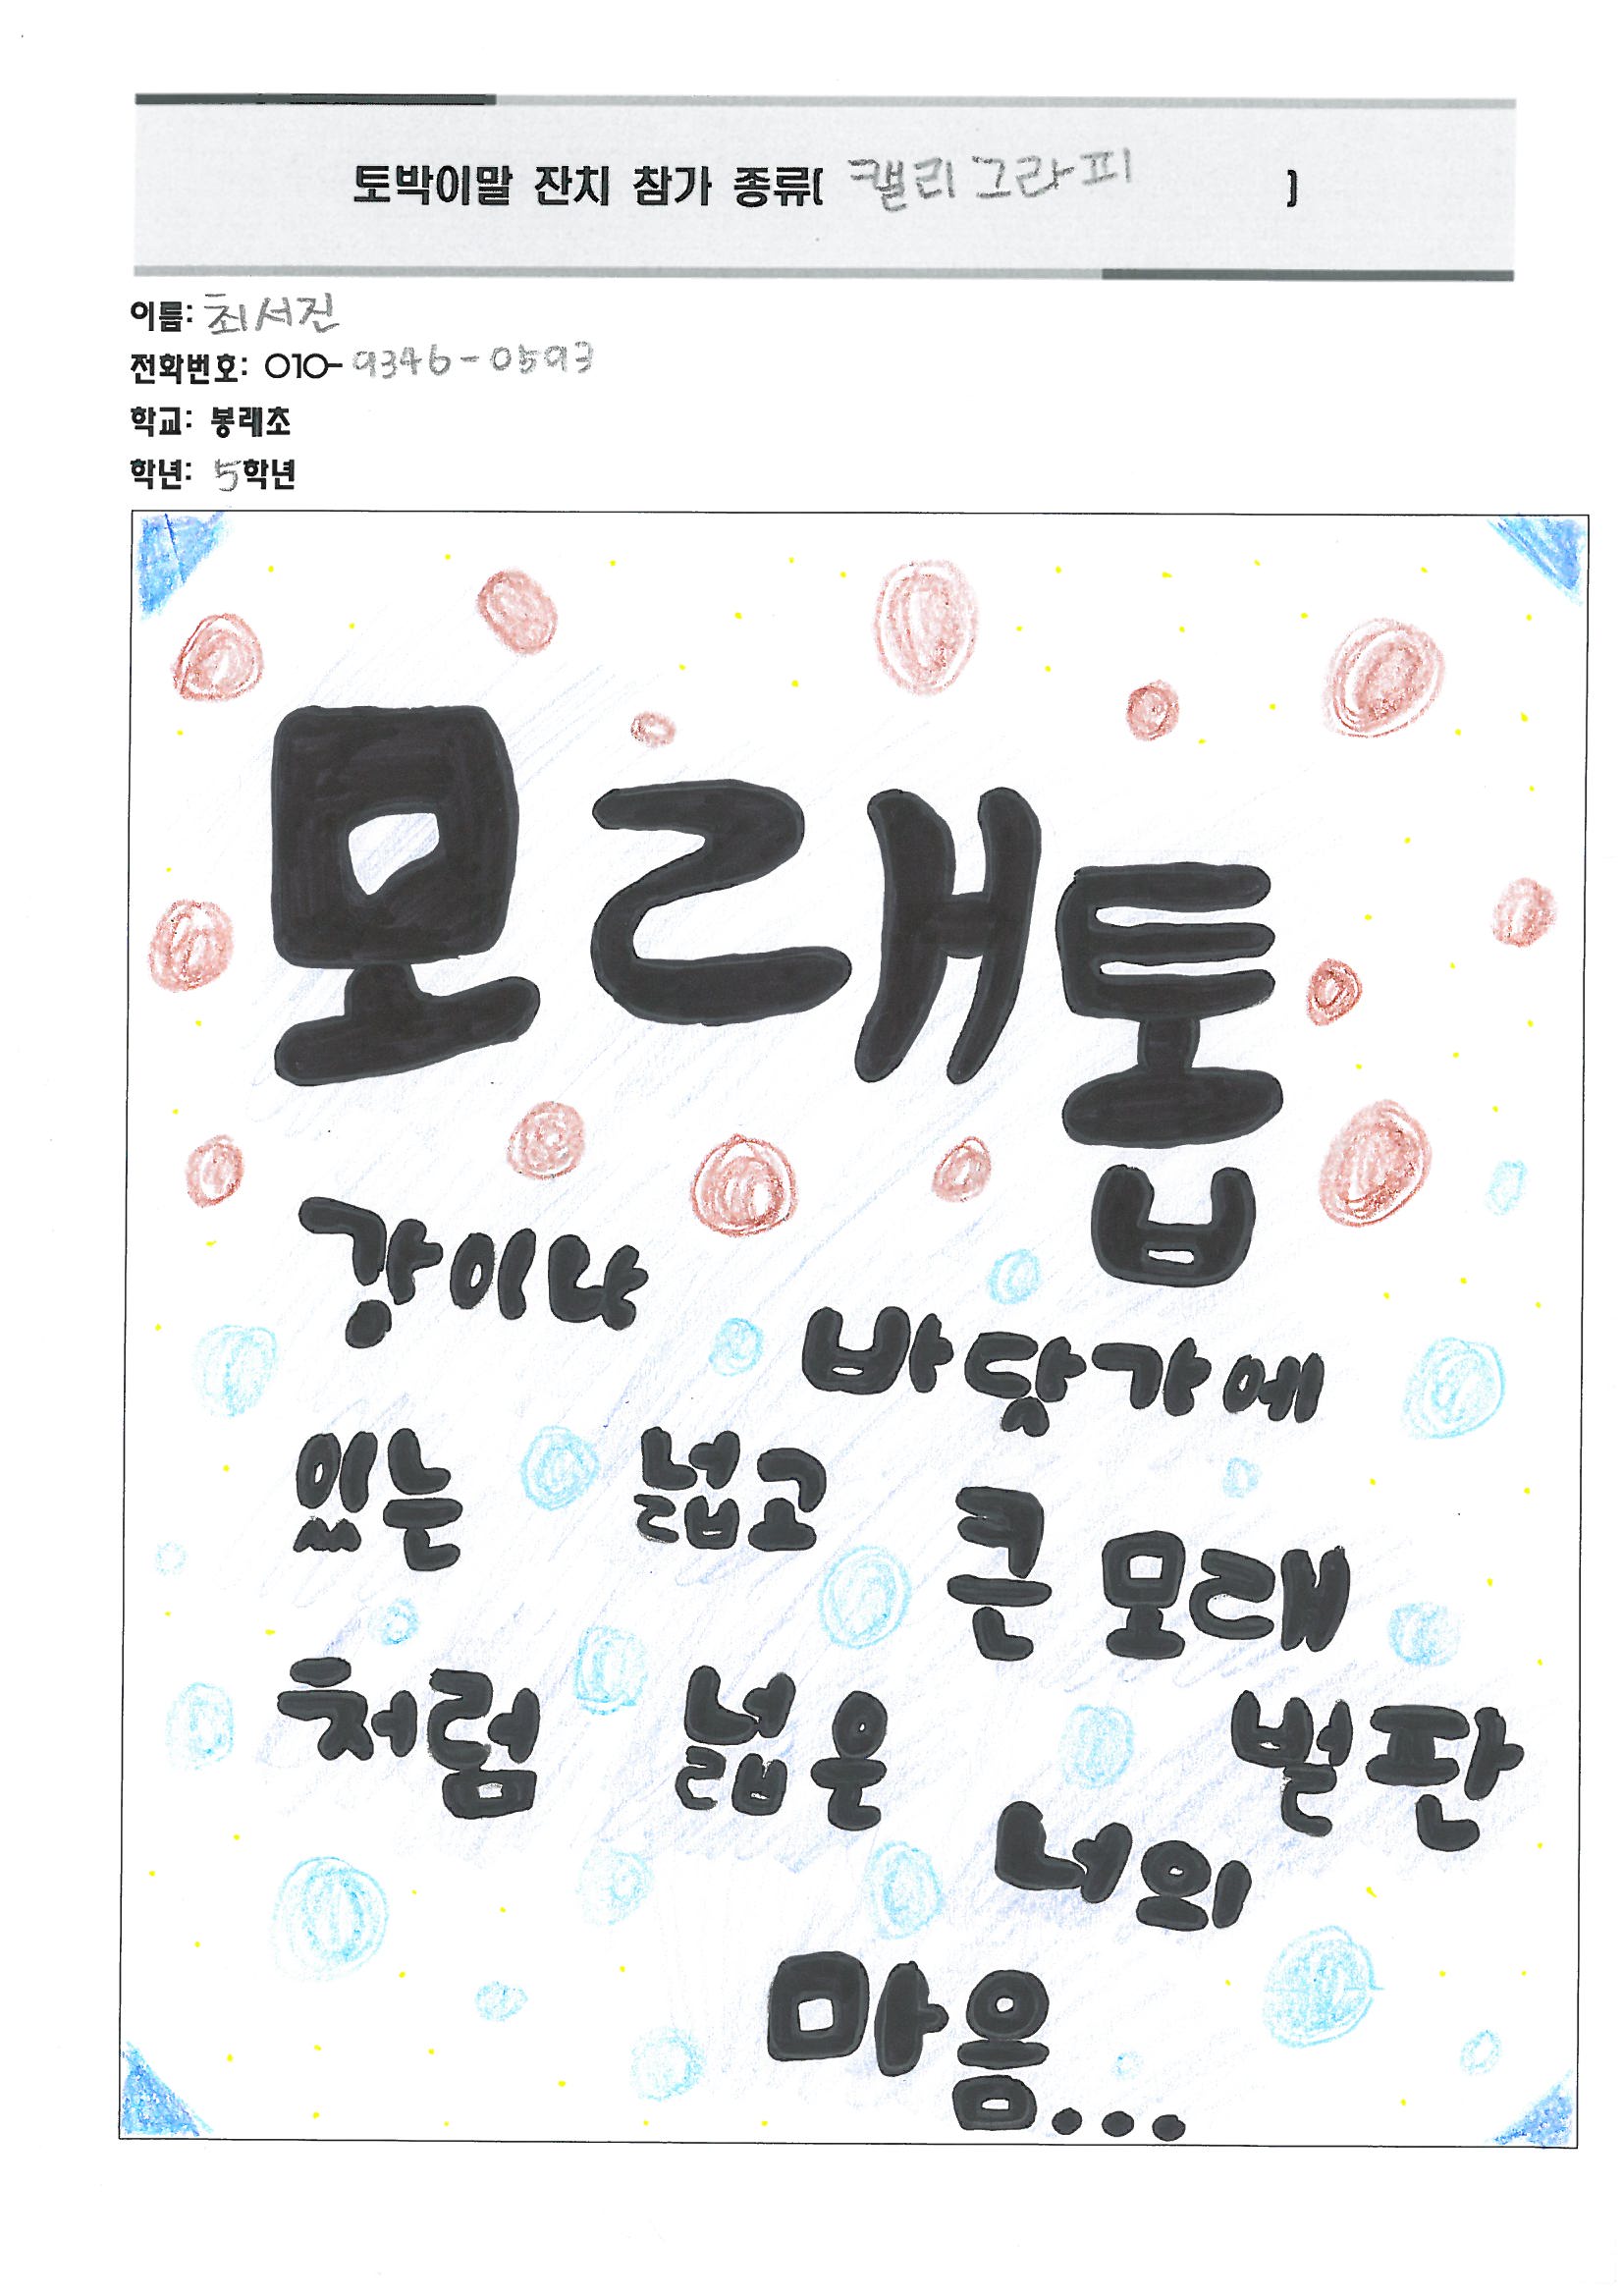 토박이말 잔치 참가 종류( 캘리그라피 )
이름: 최서진
전화번호: 010-9346-0593
학교: 봉래초
학년: 5학년
모래톱
강이나 바닷가에
있는 넓고 큰 모래
벌판
처럼 넓은 너의
마음...